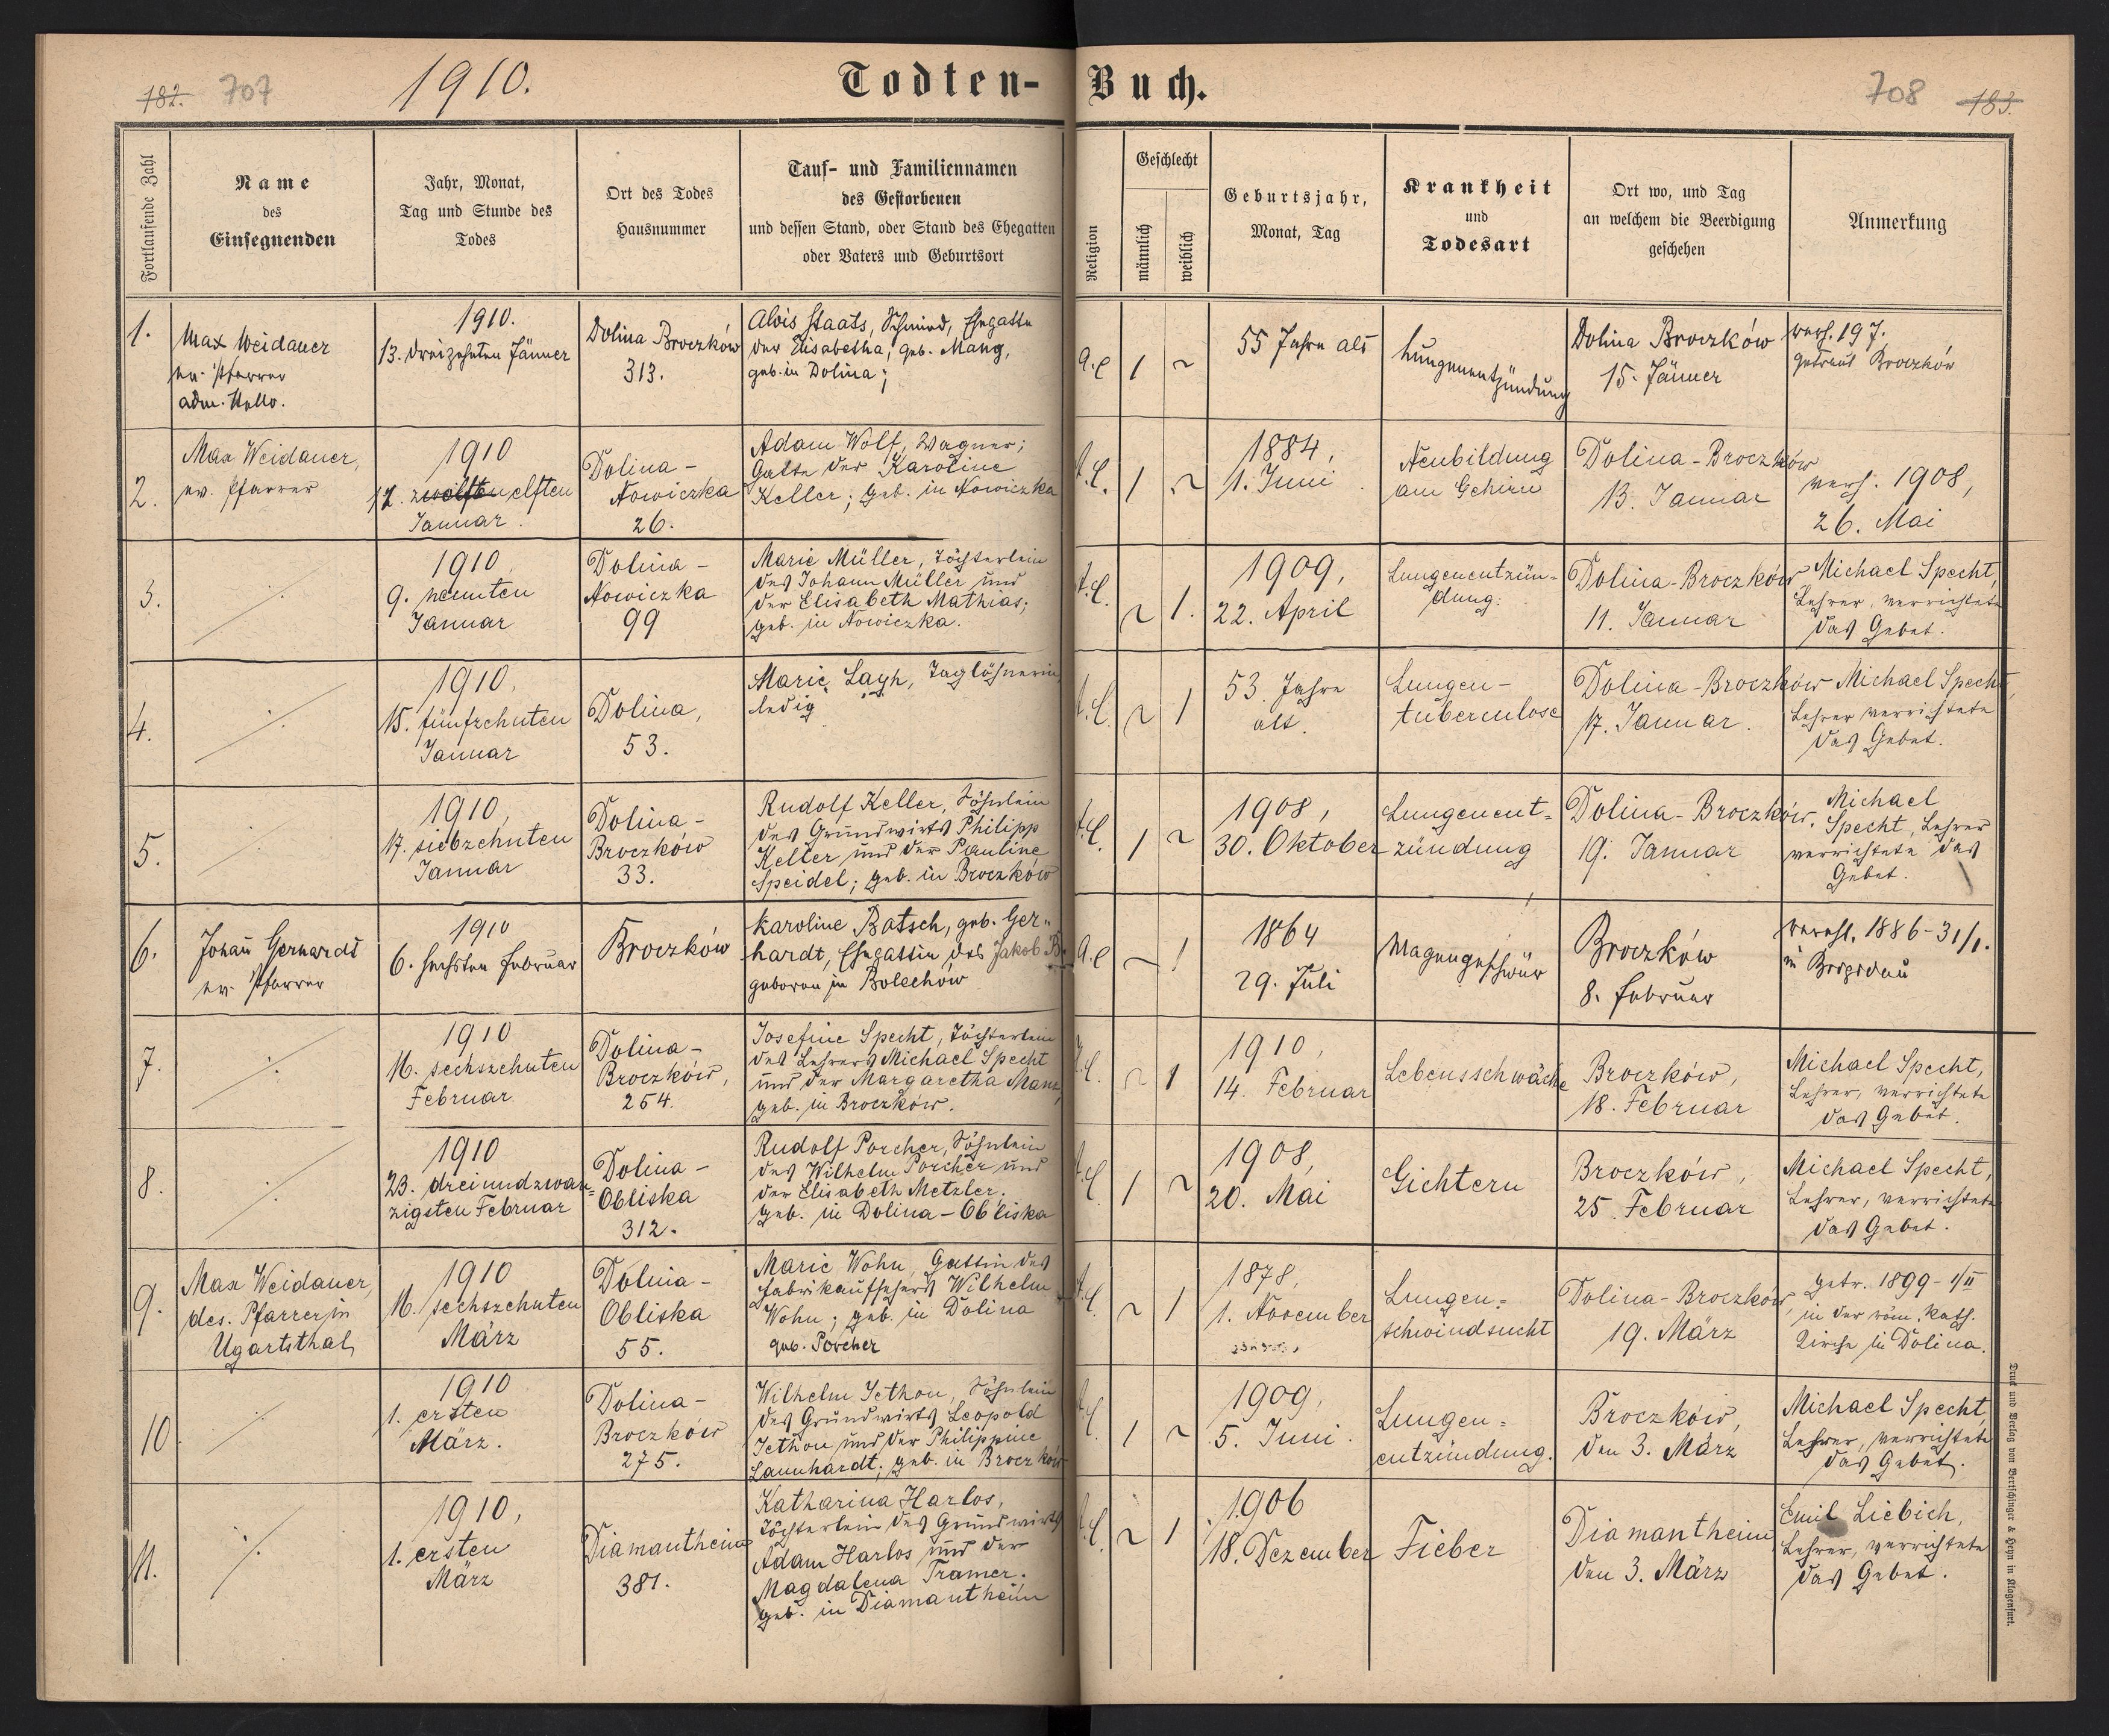 182. 707
1910.
Todten-Buch.
708 183.
Fortlaufende Zahl
Name
des
Einsegnenden
Jahr, Monat,
Tag und Stunde des
Todes
Ort des Todes
Hausnummer
Tauf- und Familiennamen
des Gestorbenen
und dessen Stand, oder Stand des Ehegatten
oder Vaters und Geburtsort
Religion
Geschlecht
männlich
weiblich
Geburtsjahr,
Monat, Tag
Krankheit
und
Todesart
Ort wo, und Tag
an welchem die Beerdigung
geschehen
Anmerkung
1.
Max Weidauer
ev. Pfarrer
adm.
1910.
13. dreizehnten Jänner
Dolina Broczków
313.
Alois Staats, Schmied, Ehegatte
der Elisabetha, geb. Mang,
geb. in Dolina;
A.C
1
~
55 Jahre alt
Lungenentzündung
Dolina Broczków
15. Jänner
verh. 197.
getraut Broczków
2.
Max Weidauer,
ev. Pfarrer
1910
12. zwölften elften
Januar.
Dolina-
Nowiczka
26.
Adam Wolf, Wagner;
Gatte der Karoline
Keller; geb. in Nowiczka
A.C.
1
~
1884,
1. Juni
Neubildung
am Gehirn
Dolina-Broczków
13. Januar
verh. 1908,
26. Mai
3.
./.
1910,
9. neunten
Januar
Dolina-
Nowiczka
99
Marie Müller, Töchterlein
des Johann Müller und
der Elisabeth Mathias;
geb. in Nowiczka.
A.C.
~
1.
1909,
22. April
Lungenentzün-
dung.
Dolina-Broczków
11. Januar
Michael Specht,
Lehrer, verrichtete
das Gebet.
4.
./.
1910,
15. fünfzehnten
Januar
Dolina,
53.
Marie Lagh, Taglöhnerin,
ledig
A.C.
~
1
53 Jahre
alt.
Lungen-
tuberculose
Dolina-Broczków
17. Januar.
Michael Specht,
Lehrer verrichtete
das Gebet.
5.
./.
1910,
17. siebzehnten
Januar
Dolina-
Broczków
33.
Rudolf Keller, Söhnlein
des Grundwirts Philipp
Keller und der Pauline
Speidel; geb. in Broczków
A.C.
1
~
1908,
30. Oktober
Lungenent-
zündung
Dolina-Broczków.
19. Januar
Michael
Specht, Lehrer
verrichtete das
Gebet.
6.
Johann Gerhardt
ev. Pfarrer
1910
6. sechsten Februar
Broczków
Karoline Batsch, geb. Ger-
hardt, Ehegattin des Jakob B.
geboren in Bolechów
A.C
~
1
1864
29. Juli
Magengeschwür
Broczków
8. Februar
verehl. 1886-31/1.
in Brigidau
7.
./.
1910
16. sechszehnten
Februar
Dolina-
Broczków,
254.
Josefine Specht, Töchterlein
des Lehrers Michael Specht
und der Margaretha Manz,
geb. in Broczków.
A.C.
~
1
1910,
14. Februar
Lebensschwäche
Broczków,
18. Februar
Michael Specht,
Lehrer, verrichtete
das Gebet.
8.
./.
1910
23. dreiundzwan-
zigsten Februar
Dolina-
Obliska
312.
Rudolf Porcher, Söhnlein
des Wilhelm Porcher und
der Elisabeth Metzler.
geb. in Dolina-Obliska
A.C.
1
~
1908,
20. Mai
Gichtern
Broczków,
25. Februar
Michael Specht,
Lehrer, verrichtete
das Gebet.
9.
Max Weidauer,
des. Pfarrer in
Ugartsthal
1910
16. sechszehnten
März
Dolina-
Obliska
55.
Marie Wohn, Gattin des
Fabrikaufsehers Wilhelm
Wohn; geb. in Dolina
geb. Porcher
A.C.
~
1
1878,
1. November
Lungen-
schwindsucht
Dolina-Broczków
19. März
getr. 1899-1/II
in der röm. kath.
Kirche in Dolina.
10
./.
1910
1. ersten
März.
Dolina-
Broczków
275.
Wilhelm Jethon, Söhnlein
des Grundwirts Leopold
Jethon und der Philippine
Launhardt; geb. in Broczków
A.C.
1
~
1909,
5. Juni.
Lungen-
entzündung.
Broczków,
den 3. März
Michael Specht,
Lehrer, verrichtete
das Gebet.
11.
./.
1910,
1. ersten
März
Diamantheim
381.
Katharina Harlos,
Töchterlein des Grundwirts
Adam Harlos und der
Magdalena Tramer.
geb. in Diamantheim
A.C.
~
1
1906
18. Dezember
Fieber
Diamantheim
den 3. März
Emil Liebich,
Lehrer, verrichtete
das Gebet.
Druck und Verlag von Bertschinger & Heyn in Klagenfurt.